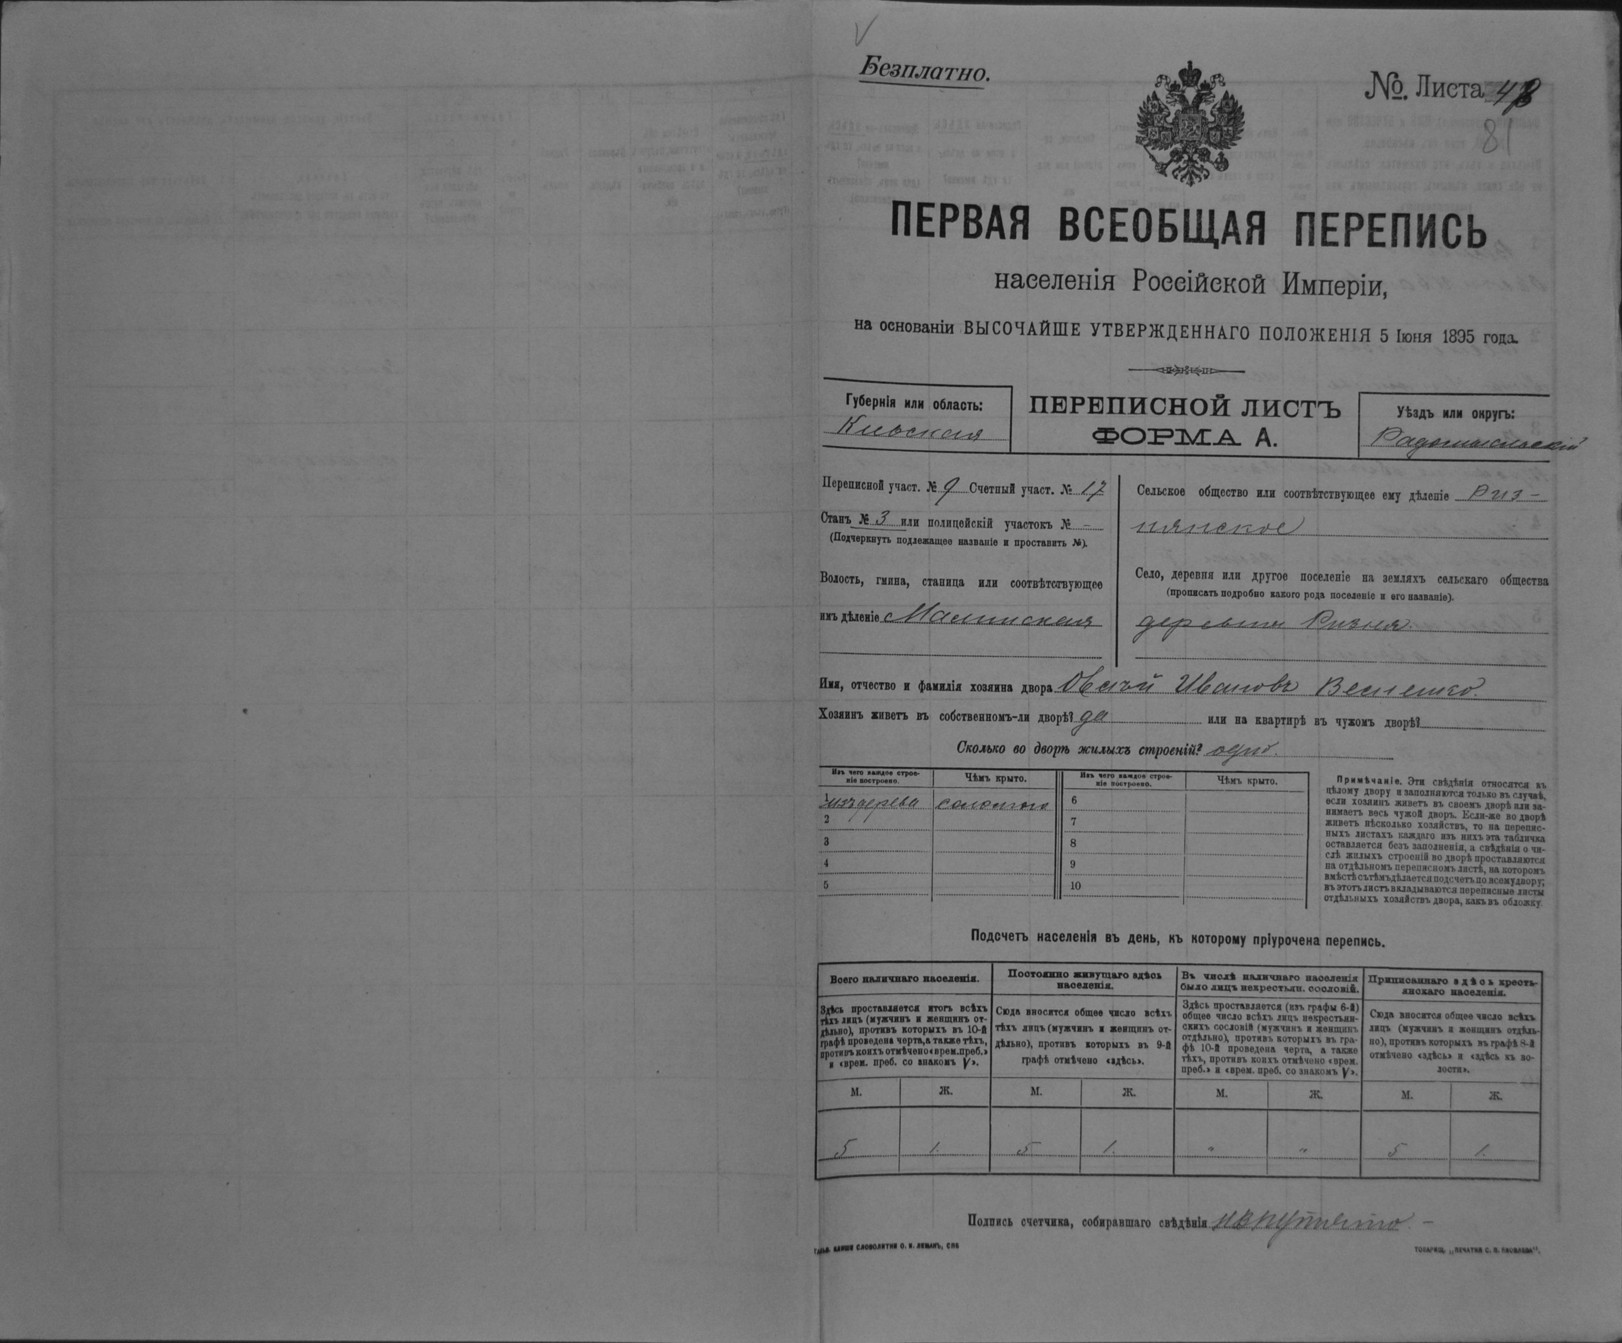 Безплатно.
№. Листа
81
ПЕРВАЯ ВСЕОБЩАЯ ПЕРЕПИСЬ
населенія Россійской Имперіи,
на основаніи ВЫСОЧАЙШЕ УТВЕРЖДЕННАГО ПОЛОЖЕНІЯ 5 Іюня 1895 года.
Губернія или область:
Кіевская
ПЕРЕПИСНОЙ ЛИСТЪ
ФОРМА А.
Уѣздъ или округъ:
Радомысльскій
Переписной участ. № 9 Счетный участ. № 17
Станъ № 3 или полицейскій участокъ № -
(Подчеркнуть подлежащее названіе и проставить №).
Волость, гмина, станица или соотвѣтствующее
имъ дѣленіе Малинская
Сельское общество или соотвѣтствующее ему дѣленіе Риз-
нянское
Село, деревня или другое поселеніе на земляхъ сельскаго общества
(прописать подробно какого рода поселеніе и его названіе).
деревня Ризня.
Имя, отчество и фамилія хозяина двора Овсѣй Ивановъ
Хозяинъ живетъ въ собственномъ-ли дворѣ? да или на квартирѣ въ чужомъ дворѣ?
Сколько во дворѣ жилыхъ строеній? одно.
Изъ чего каждое строе-
ніе построено.
Чѣмъ крыто.
Изъ чего каждое строе-
ніе построено.
Чѣмъ крыто.
1 изъ дерева соломою 6
2 7
3 8
4 9
5 10
Примѣчаніе. Эти свѣдѣнія относятся къ
цѣлому двору и заполняются только въ случаѣ,
если хозяинъ живетъ въ своемъ дворѣ или за-
нимаетъ весь чужой дворъ. Если-же во дворѣ
живетъ нѣсколько хозяйствъ, то на перепис-
ныхъ листахъ каждаго изъ нихъ эта табличка
оставляется безъ заполненія, а свѣдѣнія о чи-
слѣ жилыхъ строеній во дворѣ проставляются
на отдѣльномъ переписномъ листѣ, на которомъ
вмѣстѣ съ тѣмъ дѣлается подсчетъ по всему двору;
въ этотъ листъ вкладываются переписные листы
отдѣльныхъ хозяйствъ двора, какъ въ обложку.
Подсчетъ населенія въ день, къ которому пріурочена перепись.
Всего наличнаго населенія.
Здѣсь проставляется итогъ всѣхъ
тѣхъ лицъ (мужчинъ и женщинъ от-
дѣльно), противъ которыхъ въ 10-й
графѣ проведена черта, а также тѣхъ,
противъ коихъ отмѣчено «врем. преб.»
и «врем. преб. со знакомъ V».
Постоянно живущаго здѣсь
населенія.
Сюда вносится общее число всѣхъ
тѣхъ лицъ (мужчинъ и женщинъ от-
дѣльно), противъ которыхъ въ 9-й
графѣ отмѣчено «здѣсь».
Въ числѣ наличнаго населенія
было лицъ некрестьян. сословій.
Здѣсь проставляется (изъ графы 6-й)
общее число всѣхъ лицъ некрестьян-
скихъ сословій (мужчинъ и женщинъ
отдѣльно), противъ которыхъ въ гра-
фѣ 10-й проведена черта, а также
тѣхъ, противъ коихъ отмѣчено «врем.
преб.» и «врем. преб. со знакомъ V».
Приписаннаго здѣсь кресть-
янскаго населенія.
Сюда вносится общее число всѣхъ
лицъ (мужчинъ и женщинъ отдѣль-
но), противъ которыхъ въ графѣ 8-й
отмѣчено «здѣсь» и «здѣсь въ во-
лости».
М. Ж. М. Ж. М. Ж. М. Ж.
5 1. 5 1. " " 5 1.
Подпись счетчика, собиравшаго свѣдѣнія
СЛОВОЛИТНИ О. И. ЛЕМАНЪ, СПБ
ТОВАРИЩ. „ПЕЧАТНЯ С. П. ЯКОВЛЕВА".